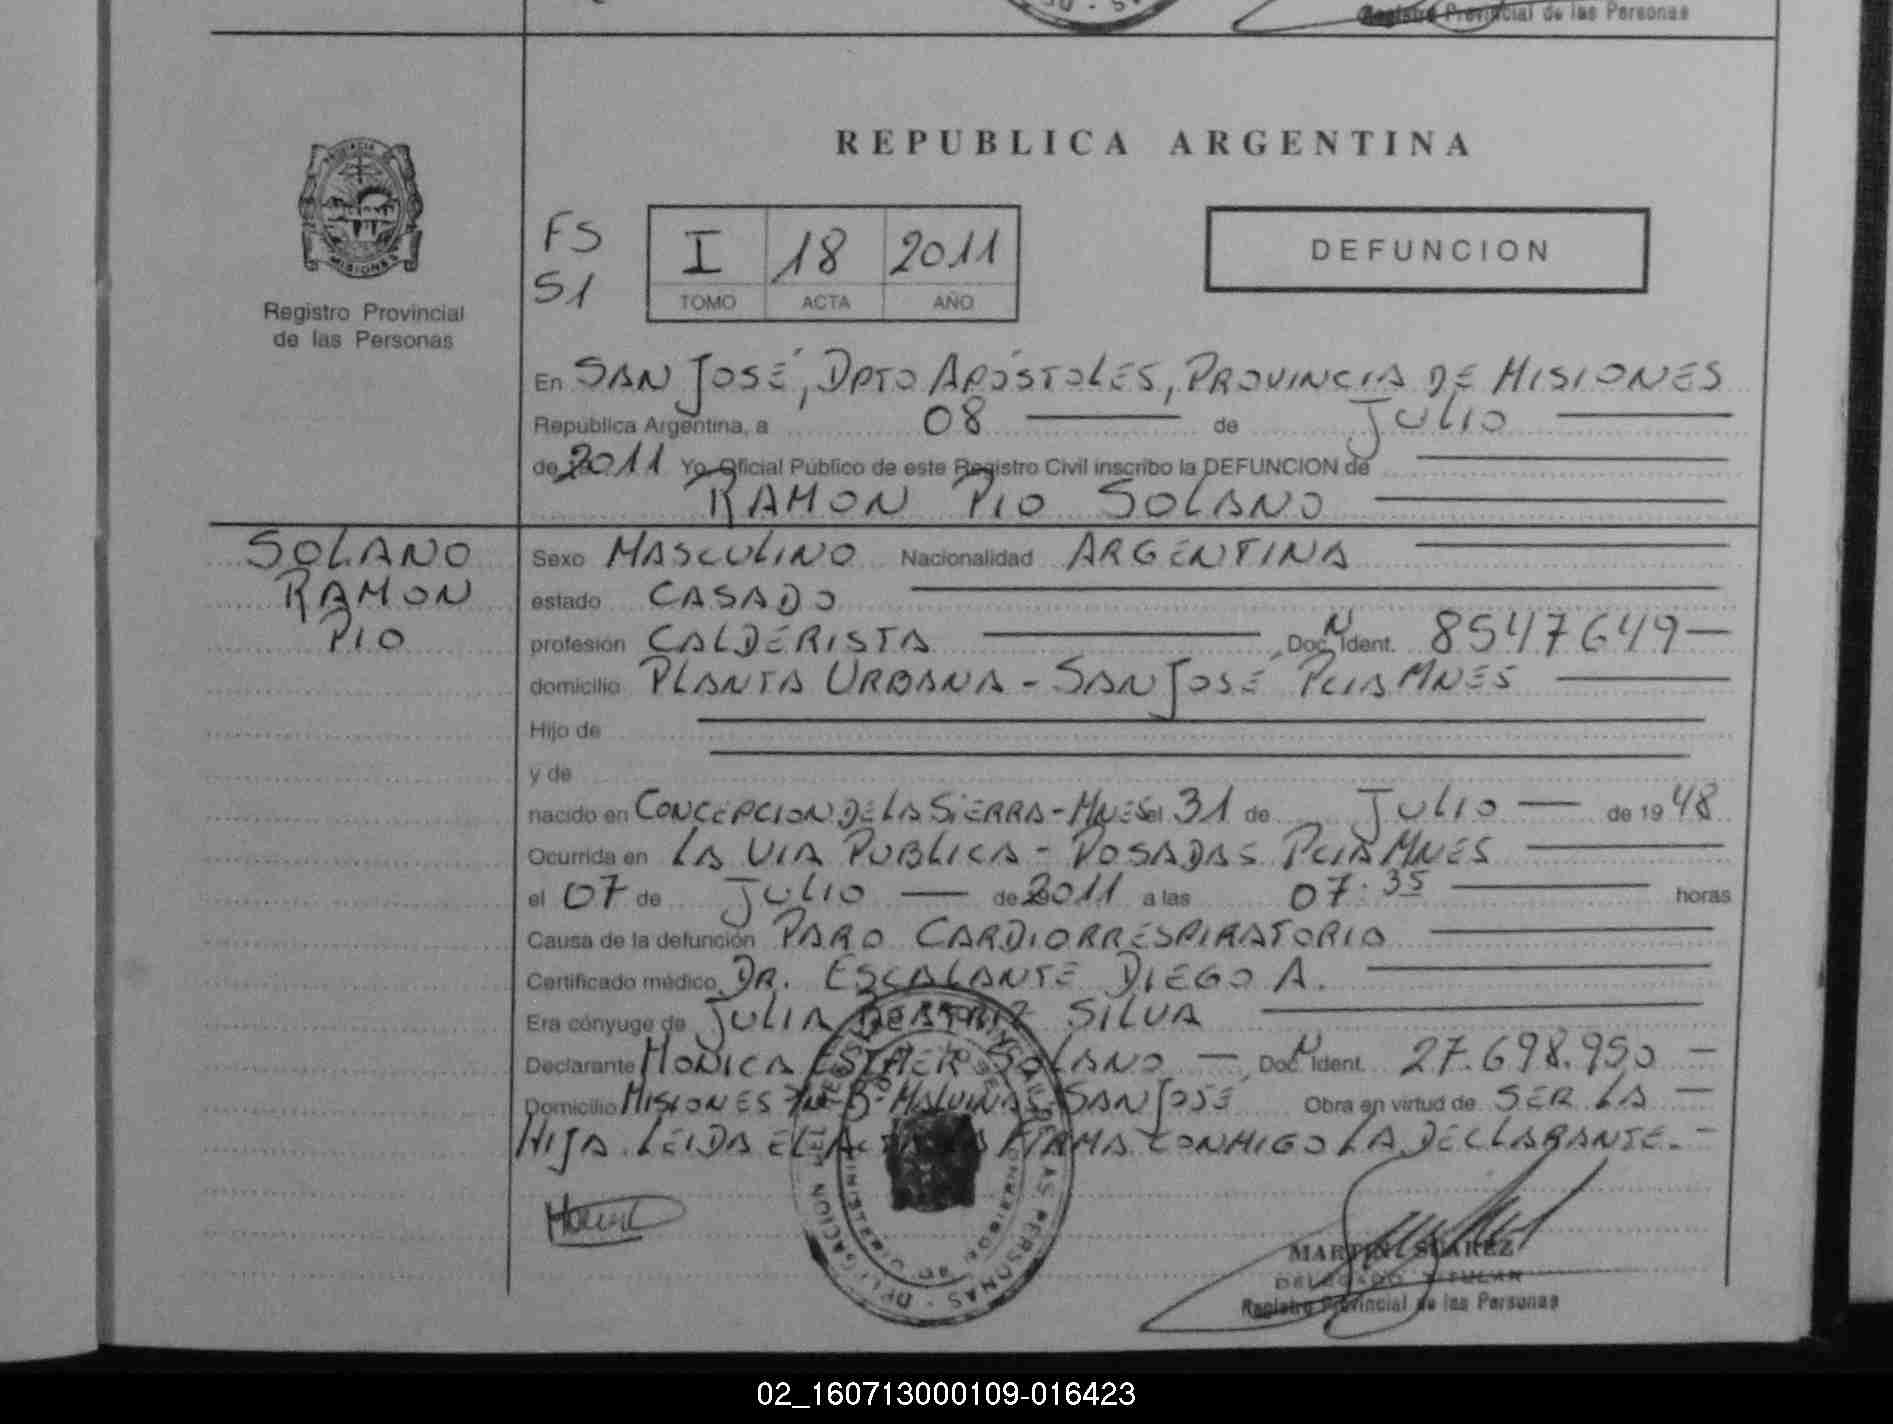 Registro Provincial de las Personas
REPUBLICA ARGENTINA
PROVINCIA
MISIONES
Registro Provincial
de las Personas
FS
51
I 18 2011
TOMO ACTA AÑO
DEFUNCION
En SAN JOSÉ, DPTO APÓSTOLES, PROVINCIA DE MISIONES
República Argentina, a 08 de JULIO
de 2011 Yo, Oficial Público de este Registro Civil inscribo la DEFUNCION de
RAMON PIO SOLANO
SOLANO
RAMON
PIO
Sexo MASCULINO Nacionalidad ARGENTINA
estado CASADO
profesión CALDERISTA Doc. N Ident. 8547649
domicilio PLANTA URBANA - SAN JOSÉ PCIA MNES
Hijo de
y de
nacido en CONCEPCION DE LA SIERRA - MNES el 31 de JULIO de 1948
Ocurrida en LA VIA PUBLICA - POSADAS PCIA MNES
el 07 de JULIO de 2011 a las 07:35 horas
Causa de la defunción PARO CARDIORRESPIRATORIO
Certificado médico DR. ESCALANTE DIEGO A.
Era cónyuge de JULIA BEATRIZ SILVA
Declarante MONICA ESTHER SOLANO Doc. N Ident. 27.698.950
Domicilio MISIONES MALVINAS SAN JOSÉ Obra en virtud de SER LA
HIJA. LEIDA EL ACTA LA FIRMA CONMIGO LA DECLARANTE.
DELEGACION DE LAS PERSONAS
MARTIN SUAREZ
DELEGADO TITULAR
Registro Provincial de las Personas
02_160713000109-016423